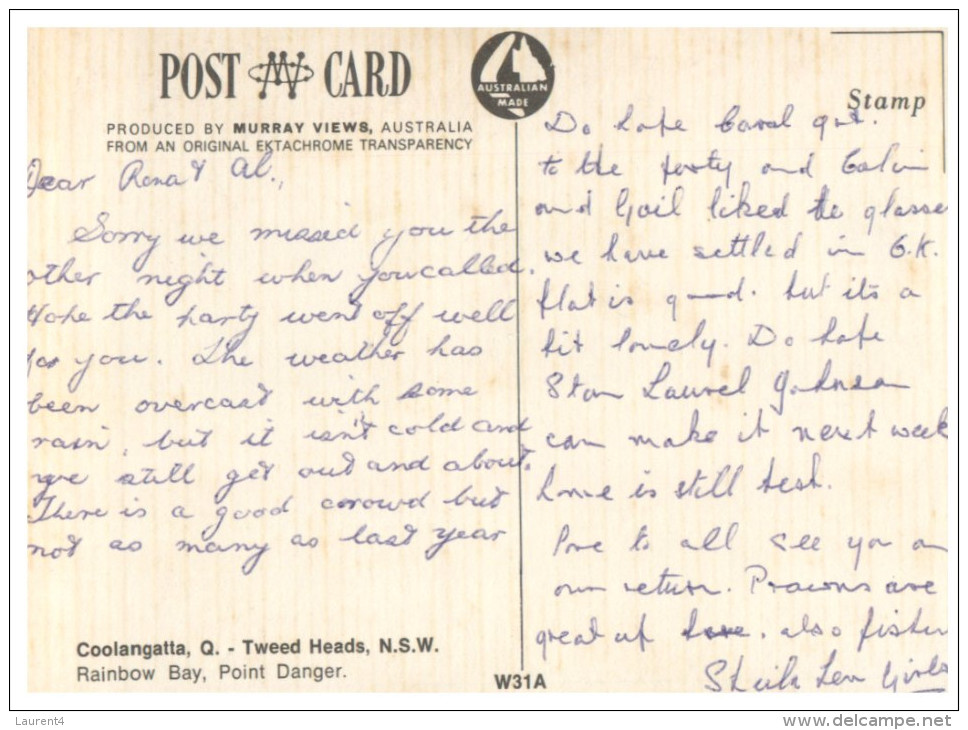 POST CARD
AUSTRALIAN
MADE
PRODUCED BY MURRAY VIEWS, AUSTRALIA
FROM AN ORIGINAL EKTACHROME TRANSPARENCY
Stamp
Dear Rona & Al.,
Sorry we missed you the
other night when you called.
Hope the party went off well
for you. The weather has
been overcast with some
rain, but it isn't cold and
we still get out and about.
There is a good crowd but
not as many as last year
Do hope Carol got.
to the party and Colin
and Gail liked the glasses
we have settled in O.K.
flat is good. but its a
bit lonely. Do hope
Stan Laurel
can make it next week
home is still best.
Love to all see you on
our return. Prawns are
great up here. also fish
Sheila Len Girls
Coolangatta, Q. - Tweed Heads, N.S.W.
Rainbow Bay, Point Danger.
W31A
Laurent4
www.delcampe.net